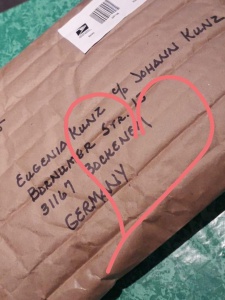 EUGENIA KUNZ c/o JOHANN KUNZ
BORNUMER
31167 BOCKENEM
GERMANY